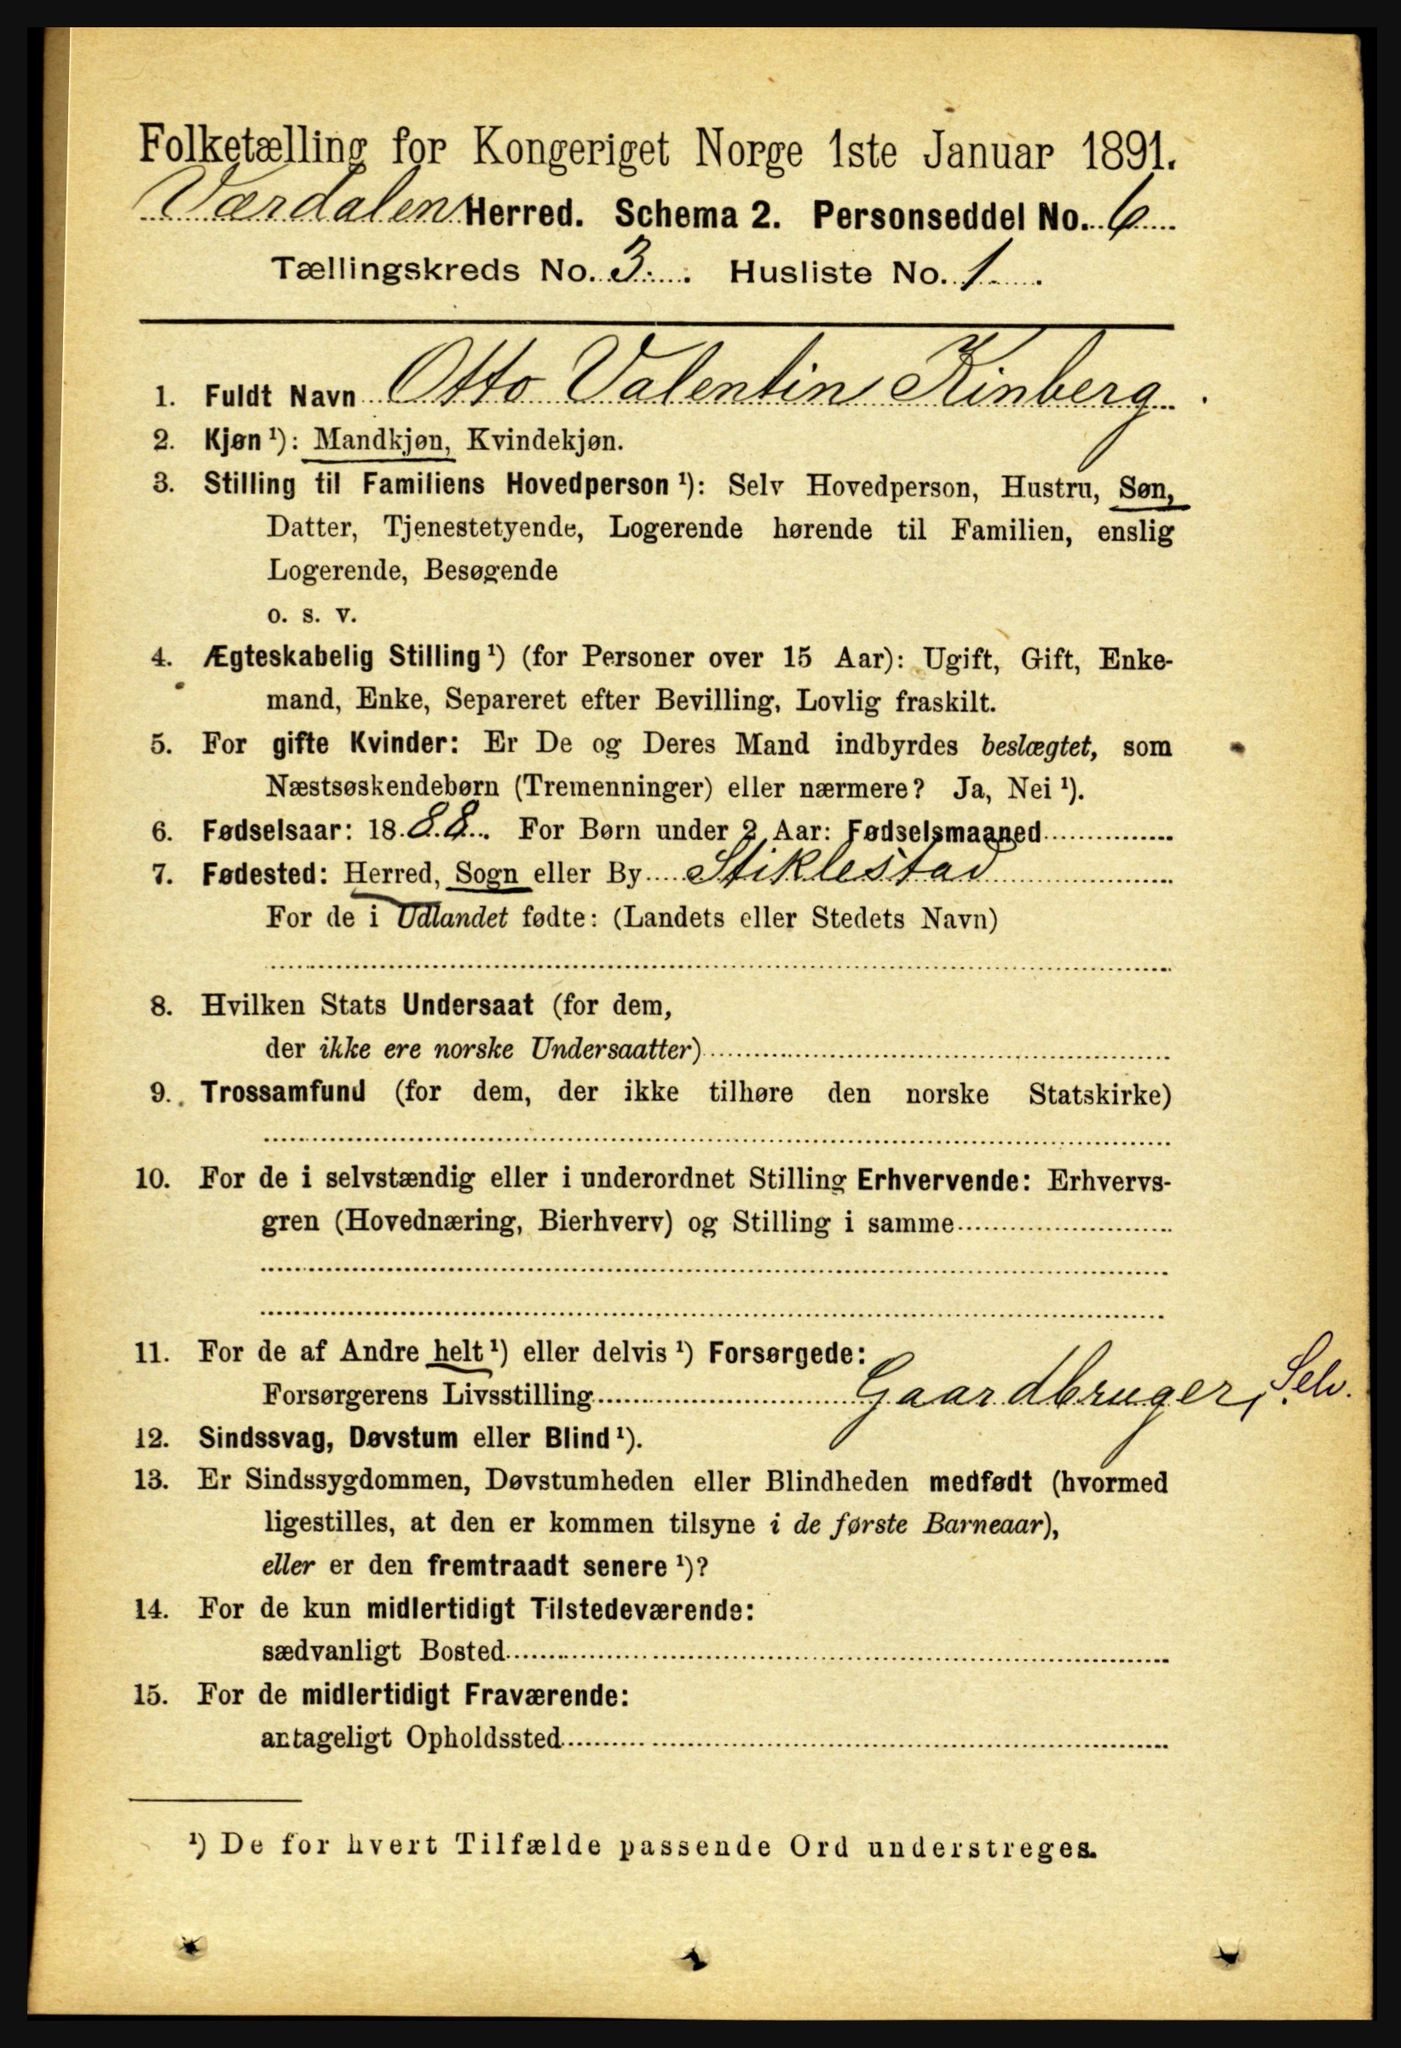 Folketælling for Kongeriget Norge 1ste Januar 1891.
Værdalen Herred. Schema 2. Personseddel No. 6
Tællingskreds No. 3. Husliste No. 1
1. Fuldt Navn Otto Valentin Kinberg
2. Kjøn ¹): Mandkjøn, Kvindekjøn.
3. Stilling til Familiens Hovedperson ¹): Selv Hovedperson, Hustru, Søn,
Datter, Tjenestetyende, Logerende hørende til Familien, enslig
Logerende, Besøgende
o. s. v.
4. Ægteskabelig Stilling ¹) (for Personer over 15 Aar): Ugift, Gift, Enke-
mand, Enke, Separeret efter Bevilling, Lovlig fraskilt.
5. For gifte Kvinder: Er De og Deres Mand indbyrdes beslægtet, som
Næstsøskendebørn (Tremenninger) eller nærmere? Ja, Nei ¹).
6. Fødselsaar: 1888. For Børn under 2 Aar: Fødselsmaaned
7. Fødested: Herred, Sogn eller By Stiklestad
For de i Udlandet fødte: (Landets eller Stedets Navn)
8. Hvilken Stats Undersaat (for dem,
der ikke ere norske Undersaatter)
9. Trossamfund (for dem, der ikke tilhøre den norske Statskirke)
10. For de i selvstændig eller i underordnet Stilling Erhvervende: Erhvervs-
gren (Hovednæring, Bierhverv) og Stilling i samme
11. For de af Andre helt ¹) eller delvis ¹) Forsørgede:
Forsørgerens Livsstilling Gaardbruger, Selv.
12. Sindssvag, Døvstum eller Blind ¹).
13. Er Sindssygdommen, Døvstumheden eller Blindheden medfødt (hvormed
ligestilles, at den er kommen tilsyne i de første Barneaar),
eller er den fremtraadt senere ¹)?
14. For de kun midlertidigt Tilstedeværende:
sædvanligt Bosted
15. For de midlertidigt Fraværende:
antageligt Opholdssted
¹) De for hvert Tilfælde passende Ord understreges.